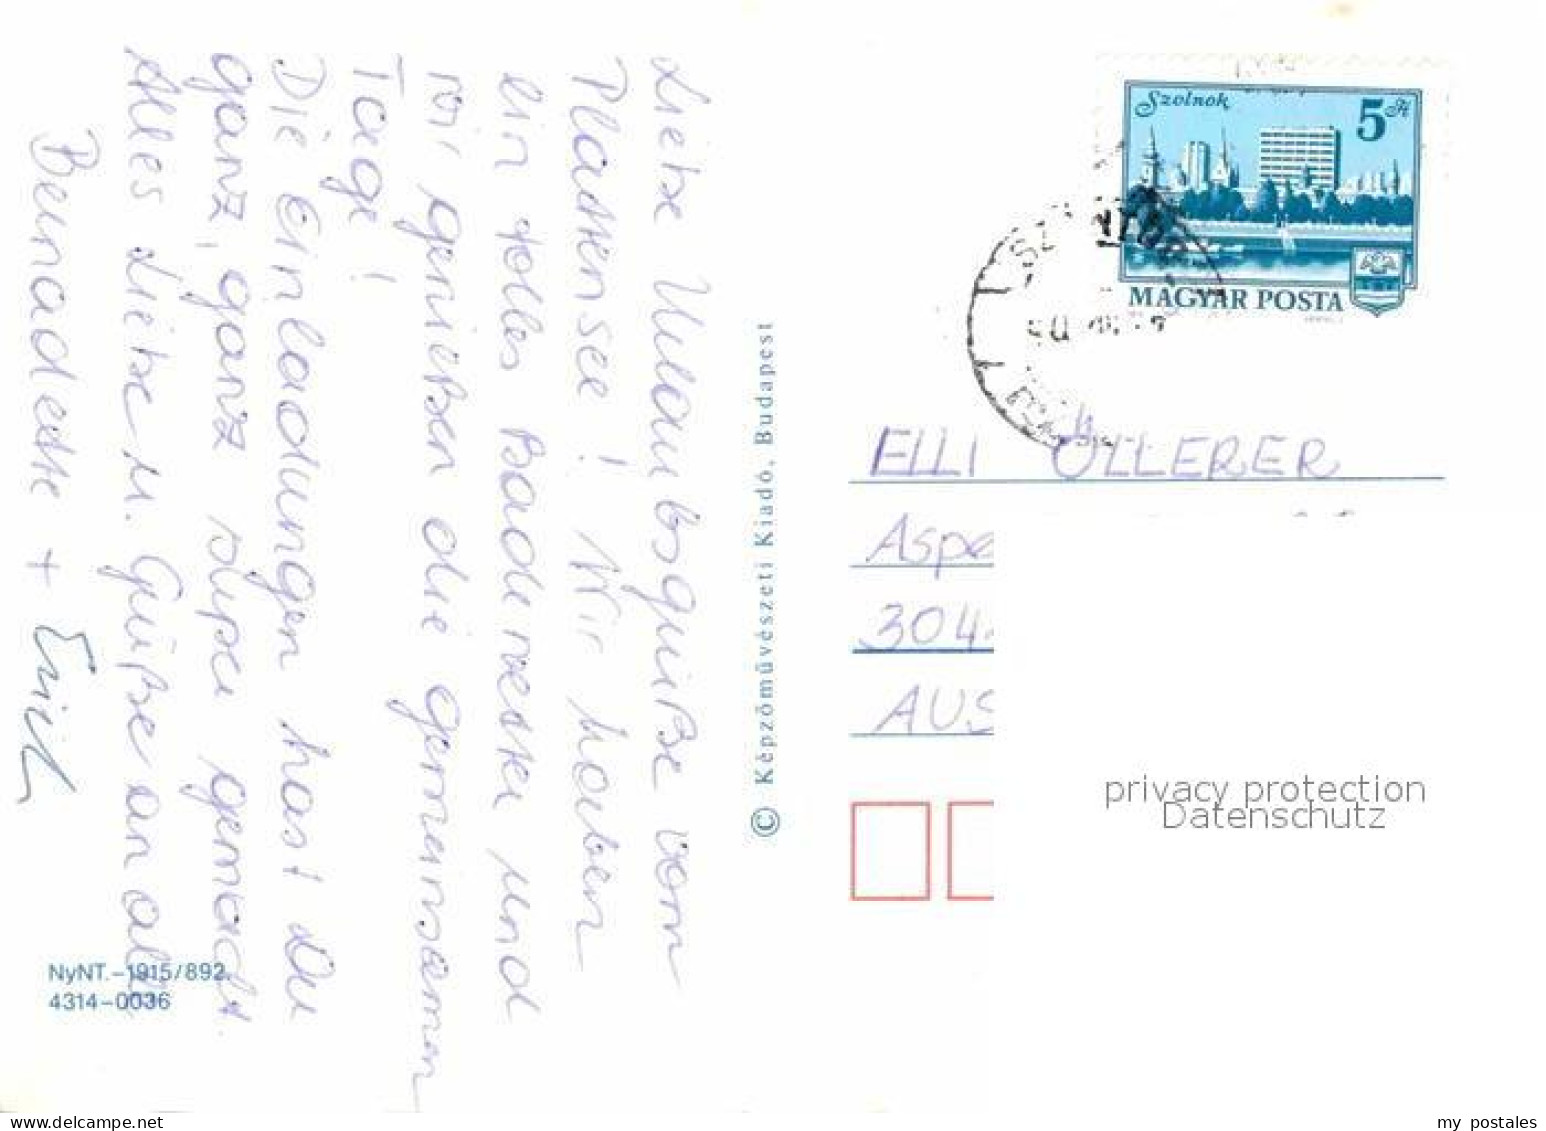 Liebe Urlaubsgrüße vom
Plattensee! Wir haben
ein tolles Badewetter und
wir genießen die gemeinsamen
Tage!
Die Einladungen hast Du
ganz, ganz super gemacht.
Alles Liebe u. Grüße an alle
Bernadette + Erich
NyNT.-1915/892.
4314-0036
© Képzőművészeti Kiadó, Budapest
Szolnok
5 Ft
MAGYAR POSTA
ELLI ÖLLERER
Aspe
304
AUS
privacy protection
Datenschutz
my postales